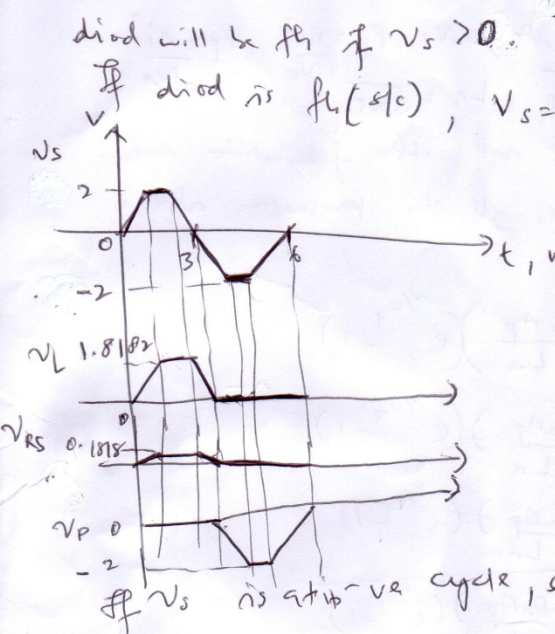 diod will be fh if Vs > 0.
If diod is fh (s/c), Vs =
V
Vs
2
0
3
6
t,
-2
VL 1.8182
0
VRS 0.1818
VP 0
-2
If Vs is at -ve cycle,